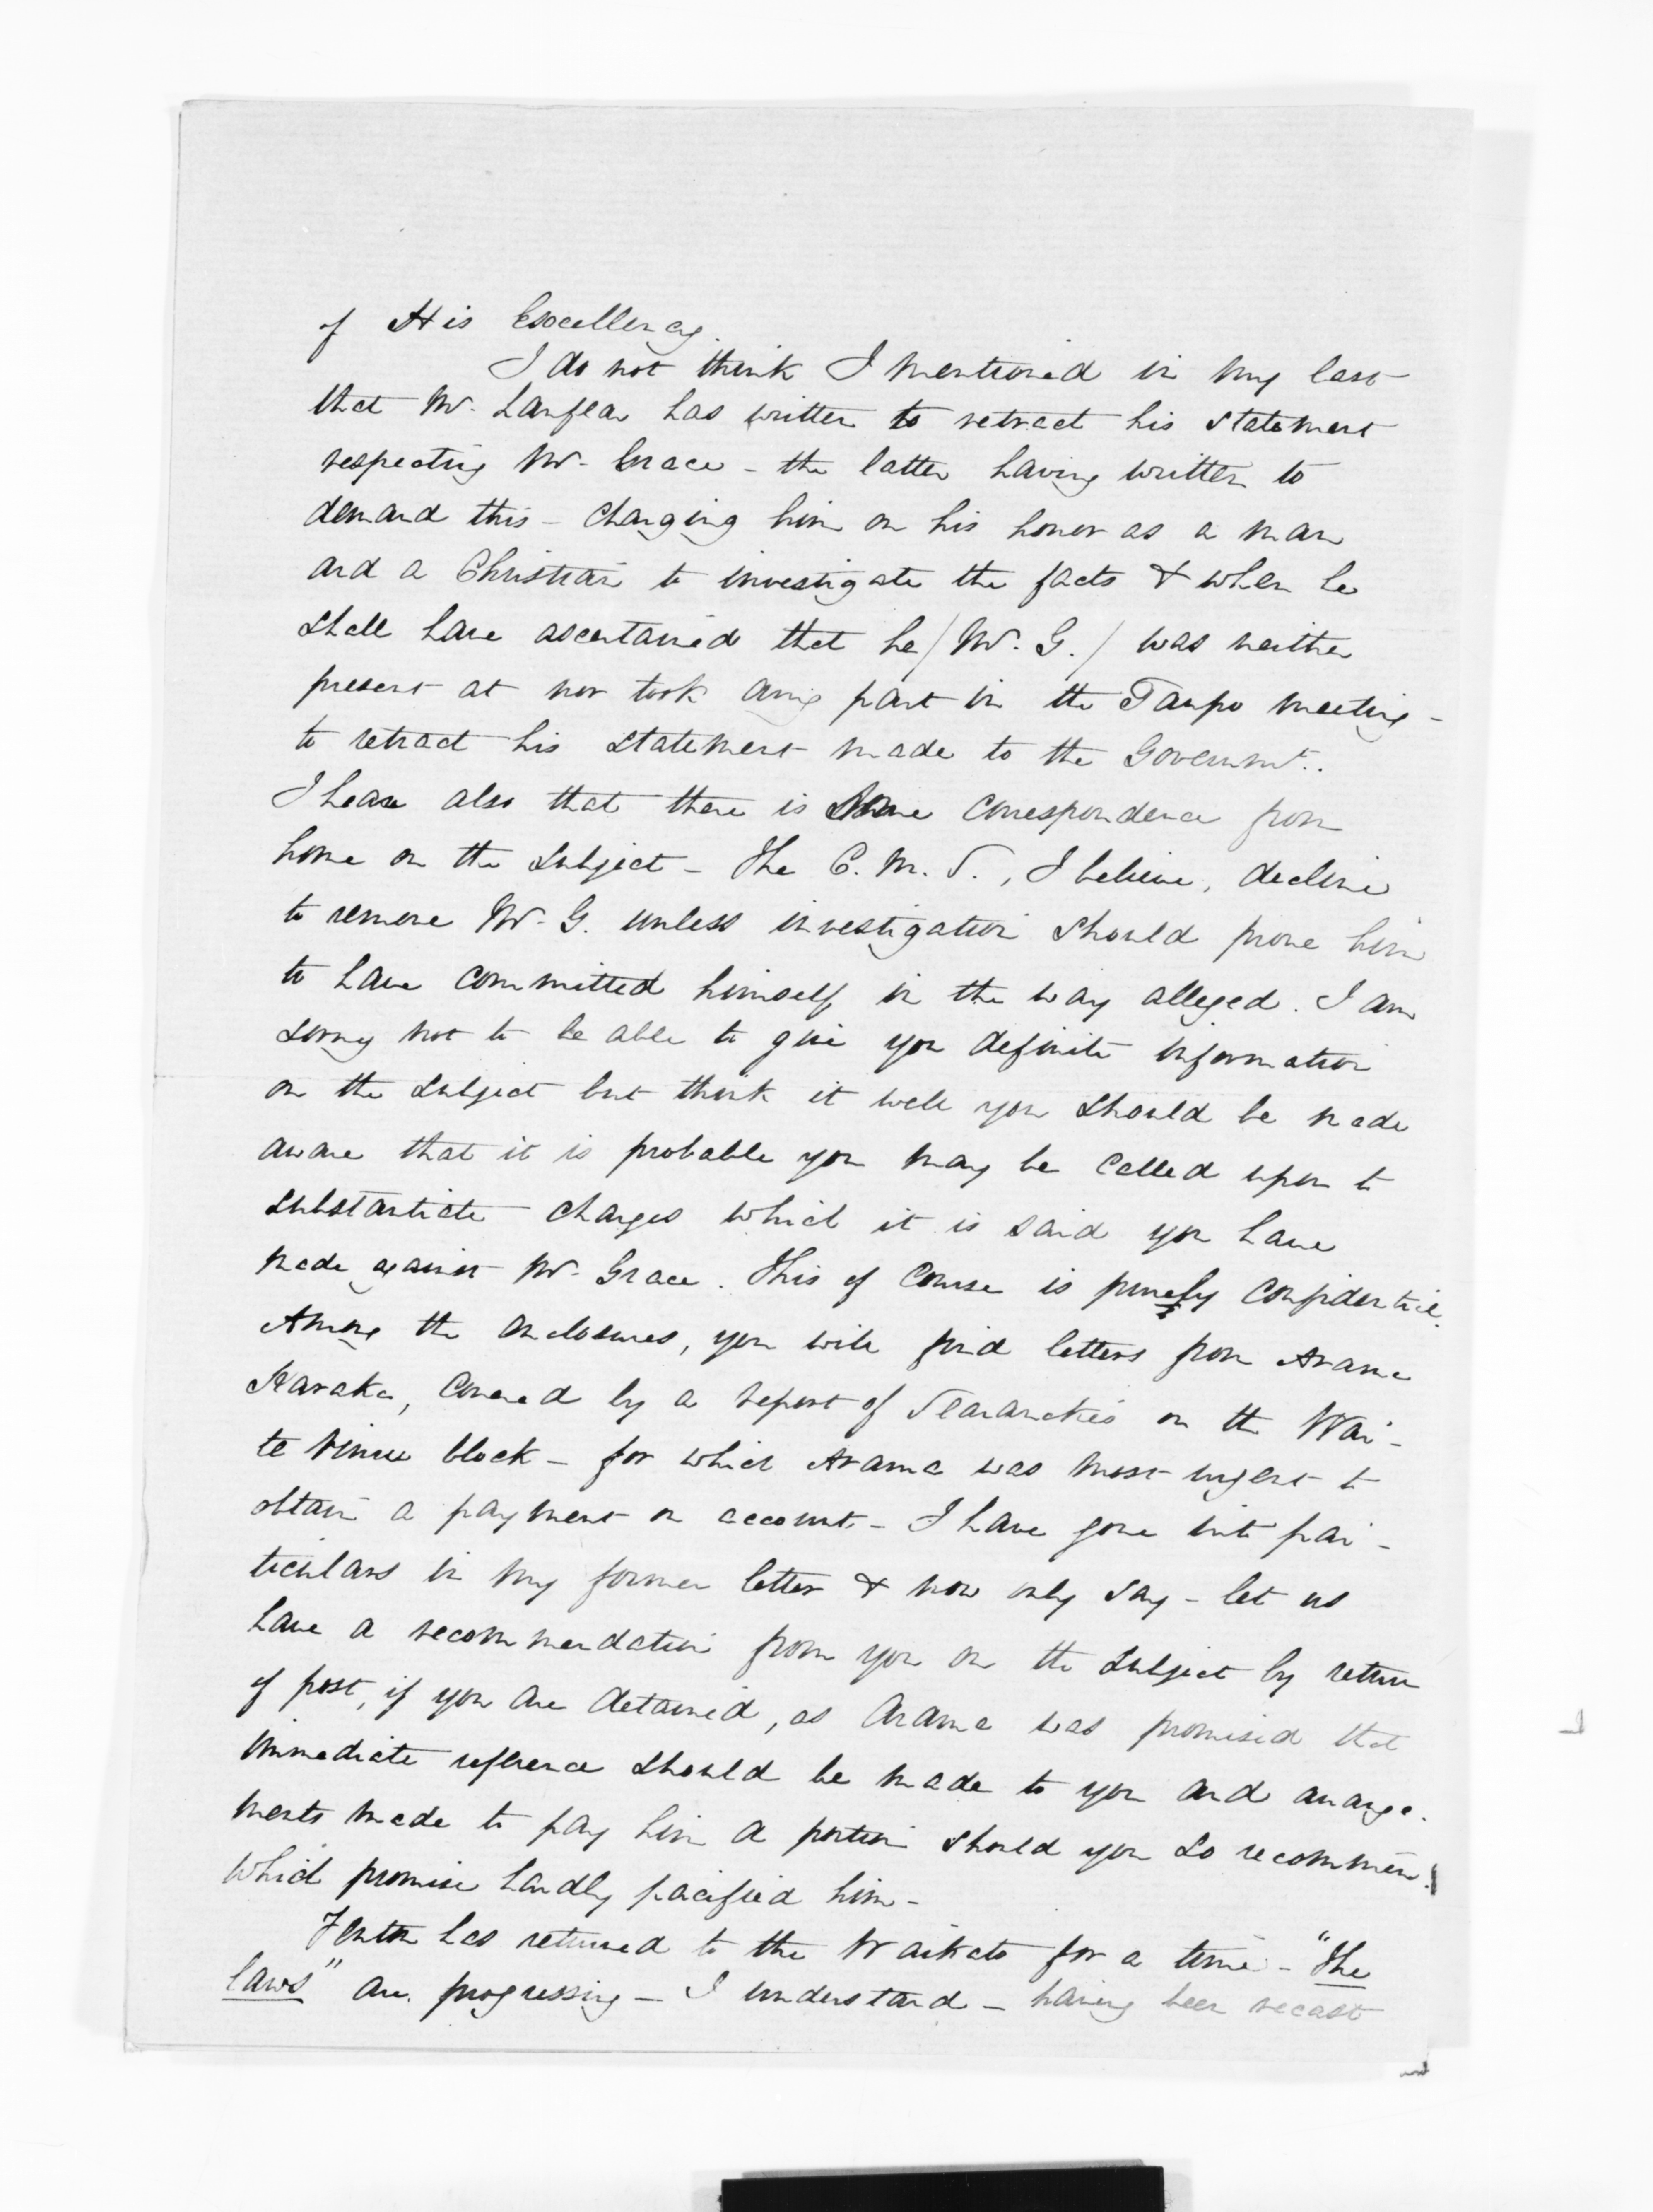 of His Excellency.
I do not think I mentioned in my last
that Mr. Lanfear has written to retract his statement
respecting Mr. Grace - the latter having written to
demand this - charging him on his honor as a man
and a Christian to investigate the facts & when he
shall have ascertained that he / Mr. G. / was neither
present at nor took any part in the Taupo meeting -
to retract his statement made to the Governmt..
I hear also that there is some correspondence from
home on the subject - The C. M. S., I believe, decline
to remove Mr. G. unless investigation should prove him
to have committed himself in the way alleged. I am
sorry not to be able to give you definite information
on the subject but think it well you should be made
aware that it is probable you may be called upon to
substantiate charges which it is said you have
made against Mr. Grace. This of course is purely confidential.
Among the enclosures, you will find letters from Arama
Karaka, covered by a report of Searancke's on the Wai-
te block - for which Arama was most urgent to
obtain a payment on account - I have gone into par-
ticulars in my former letter & now only say - let us
have a recommendation from you on the subject by return
of post, if you are detained, as Arama was promised that
immediate reference should be made to you and arrange-
ments made to pay him a portion should you so recommend
which promise hardly pacified him -
Fenton has returned to the Waikato for a time - "The
laws" are progressing - I understand - having been recast